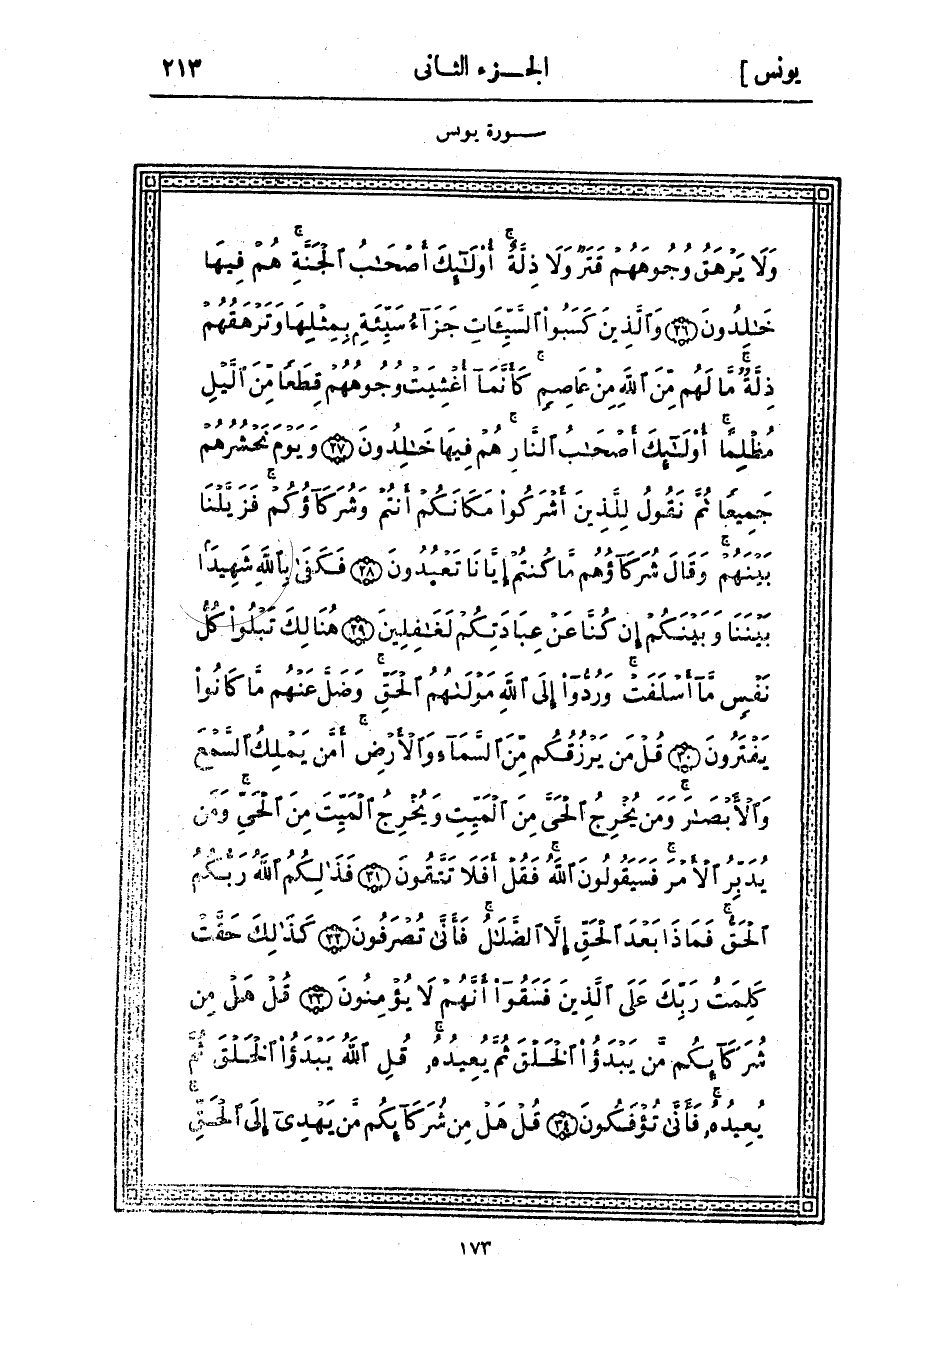 يونس ] الجـــزء الثانى ٢١٣
ســـورة يونس
وَلَا يَرْهَقُ وُجُوهَهُمْ قَتَرٌ وَلَا ذِلَّةٌ ۚ أُوْلَٰٓئِكَ أَصْحَٰبُ ٱلْجَنَّةِ ۚ هُمْ فِيهَا
خَٰلِدُونَ ۝٢٦ وَٱلَّذِينَ كَسَبُوا۟ ٱلسَّيِّـَٔاتِ جَزَآءُ سَيِّئَةٍۭ بِمِثْلِهَا وَتَرْهَقُهُمْ
ذِلَّةٌ ۚ مَّا لَهُم مِّنَ ٱللَّهِ مِنْ عَاصِمٍ ۚ كَأَنَّمَآ أُغْشِيَتْ وُجُوهُهُمْ قِطَعًا مِّنَ ٱلَّيْلِ
مُظْلِمًا ۚ أُوْلَٰٓئِكَ أَصْحَٰبُ ٱلنَّارِ ۚ هُمْ فِيهَا خَٰلِدُونَ ۝٢٧ وَيَوْمَ نَحْشُرُهُمْ
جَمِيعًا ثُمَّ نَقُولُ لِلَّذِينَ أَشْرَكُوا۟ مَكَانَكُمْ أَنتُمْ وَشُرَكَآؤُكُمْ ۚ فَزَيَّلْنَا
بَيْنَهُمْ ۚ وَقَالَ شُرَكَآؤُهُم مَّا كُنتُمْ إِيَّانَا تَعْبُدُونَ ۝٢٨ فَكَفَىٰ بِٱللَّهِ شَهِيدًۢا
بَيْنَنَا وَبَيْنَكُمْ إِن كُنَّا عَنْ عِبَادَتِكُمْ لَغَٰفِلِينَ ۝٢٩ هُنَالِكَ تَبْلُوا۟ كُلُّ
نَفْسٍ مَّآ أَسْلَفَتْ ۚ وَرُدُّوٓا۟ إِلَى ٱللَّهِ مَوْلَىٰهُمُ ٱلْحَقِّ ۚ وَضَلَّ عَنْهُم مَّا كَانُوا۟
يَفْتَرُونَ ۝٣٠ قُلْ مَن يَرْزُقُكُم مِّنَ ٱلسَّمَآءِ وَٱلْأَرْضِ ۚ أَمَّن يَمْلِكُ ٱلسَّمْعَ
وَٱلْأَبْصَٰرَ ۚ وَمَن يُخْرِجُ ٱلْحَىَّ مِنَ ٱلْمَيِّتِ وَيُخْرِجُ ٱلْمَيِّتَ مِنَ ٱلْحَىِّ ۚ وَمَن
يُدَبِّرُ ٱلْأَمْرَ ۚ فَسَيَقُولُونَ ٱللَّهُ ۚ فَقُلْ أَفَلَا تَتَّقُونَ ۝٣١ فَذَٰلِكُمُ ٱللَّهُ رَبُّكُمُ
ٱلْحَقُّ ۚ فَمَاذَا بَعْدَ ٱلْحَقِّ إِلَّا ٱلضَّلَٰلُ ۚ فَأَنَّىٰ تُصْرَفُونَ ۝٣٢ كَذَٰلِكَ حَقَّتْ
كَلِمَتُ رَبِّكَ عَلَى ٱلَّذِينَ فَسَقُوٓا۟ أَنَّهُمْ لَا يُؤْمِنُونَ ۝٣٣ قُلْ هَلْ مِن
شُرَكَآئِكُم مَّن يَبْدَؤُا۟ ٱلْخَلْقَ ثُمَّ يُعِيدُهُۥ ۚ قُلِ ٱللَّهُ يَبْدَؤُا۟ ٱلْخَلْقَ ثُمَّ
يُعِيدُهُۥ ۚ فَأَنَّىٰ تُؤْفَكُونَ ۝٣٤ قُلْ هَلْ مِن شُرَكَآئِكُم مَّن يَهْدِىٓ إِلَى ٱلْحَقِّ ۚ
١٧٣